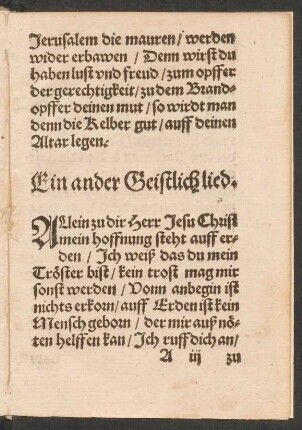 Jerusalem die mauren/ werden
wider erbawen / Denn wirst du
haben lust vnd freud / zum opffer
der gerechtigkeit/ zu dem Brand-
opffer deinen mut / so wirdt man
denn die Kelber gut / auff deinen
Altar legen.
Ein ander Geistlich lied.
ALlein zu dir Herr Jesu Christ
mein hoffnung steht auff er-
den / Ich weiß das du mein
Tröster bist / kein trost mag mir
sonst werden / Vonn anbegin ist
nichts erkorn/ auff Erden ist kein
Mensch geborn / der mir auß nö-
ten helffen kan/ Ich ruff dich an/
A iij zu